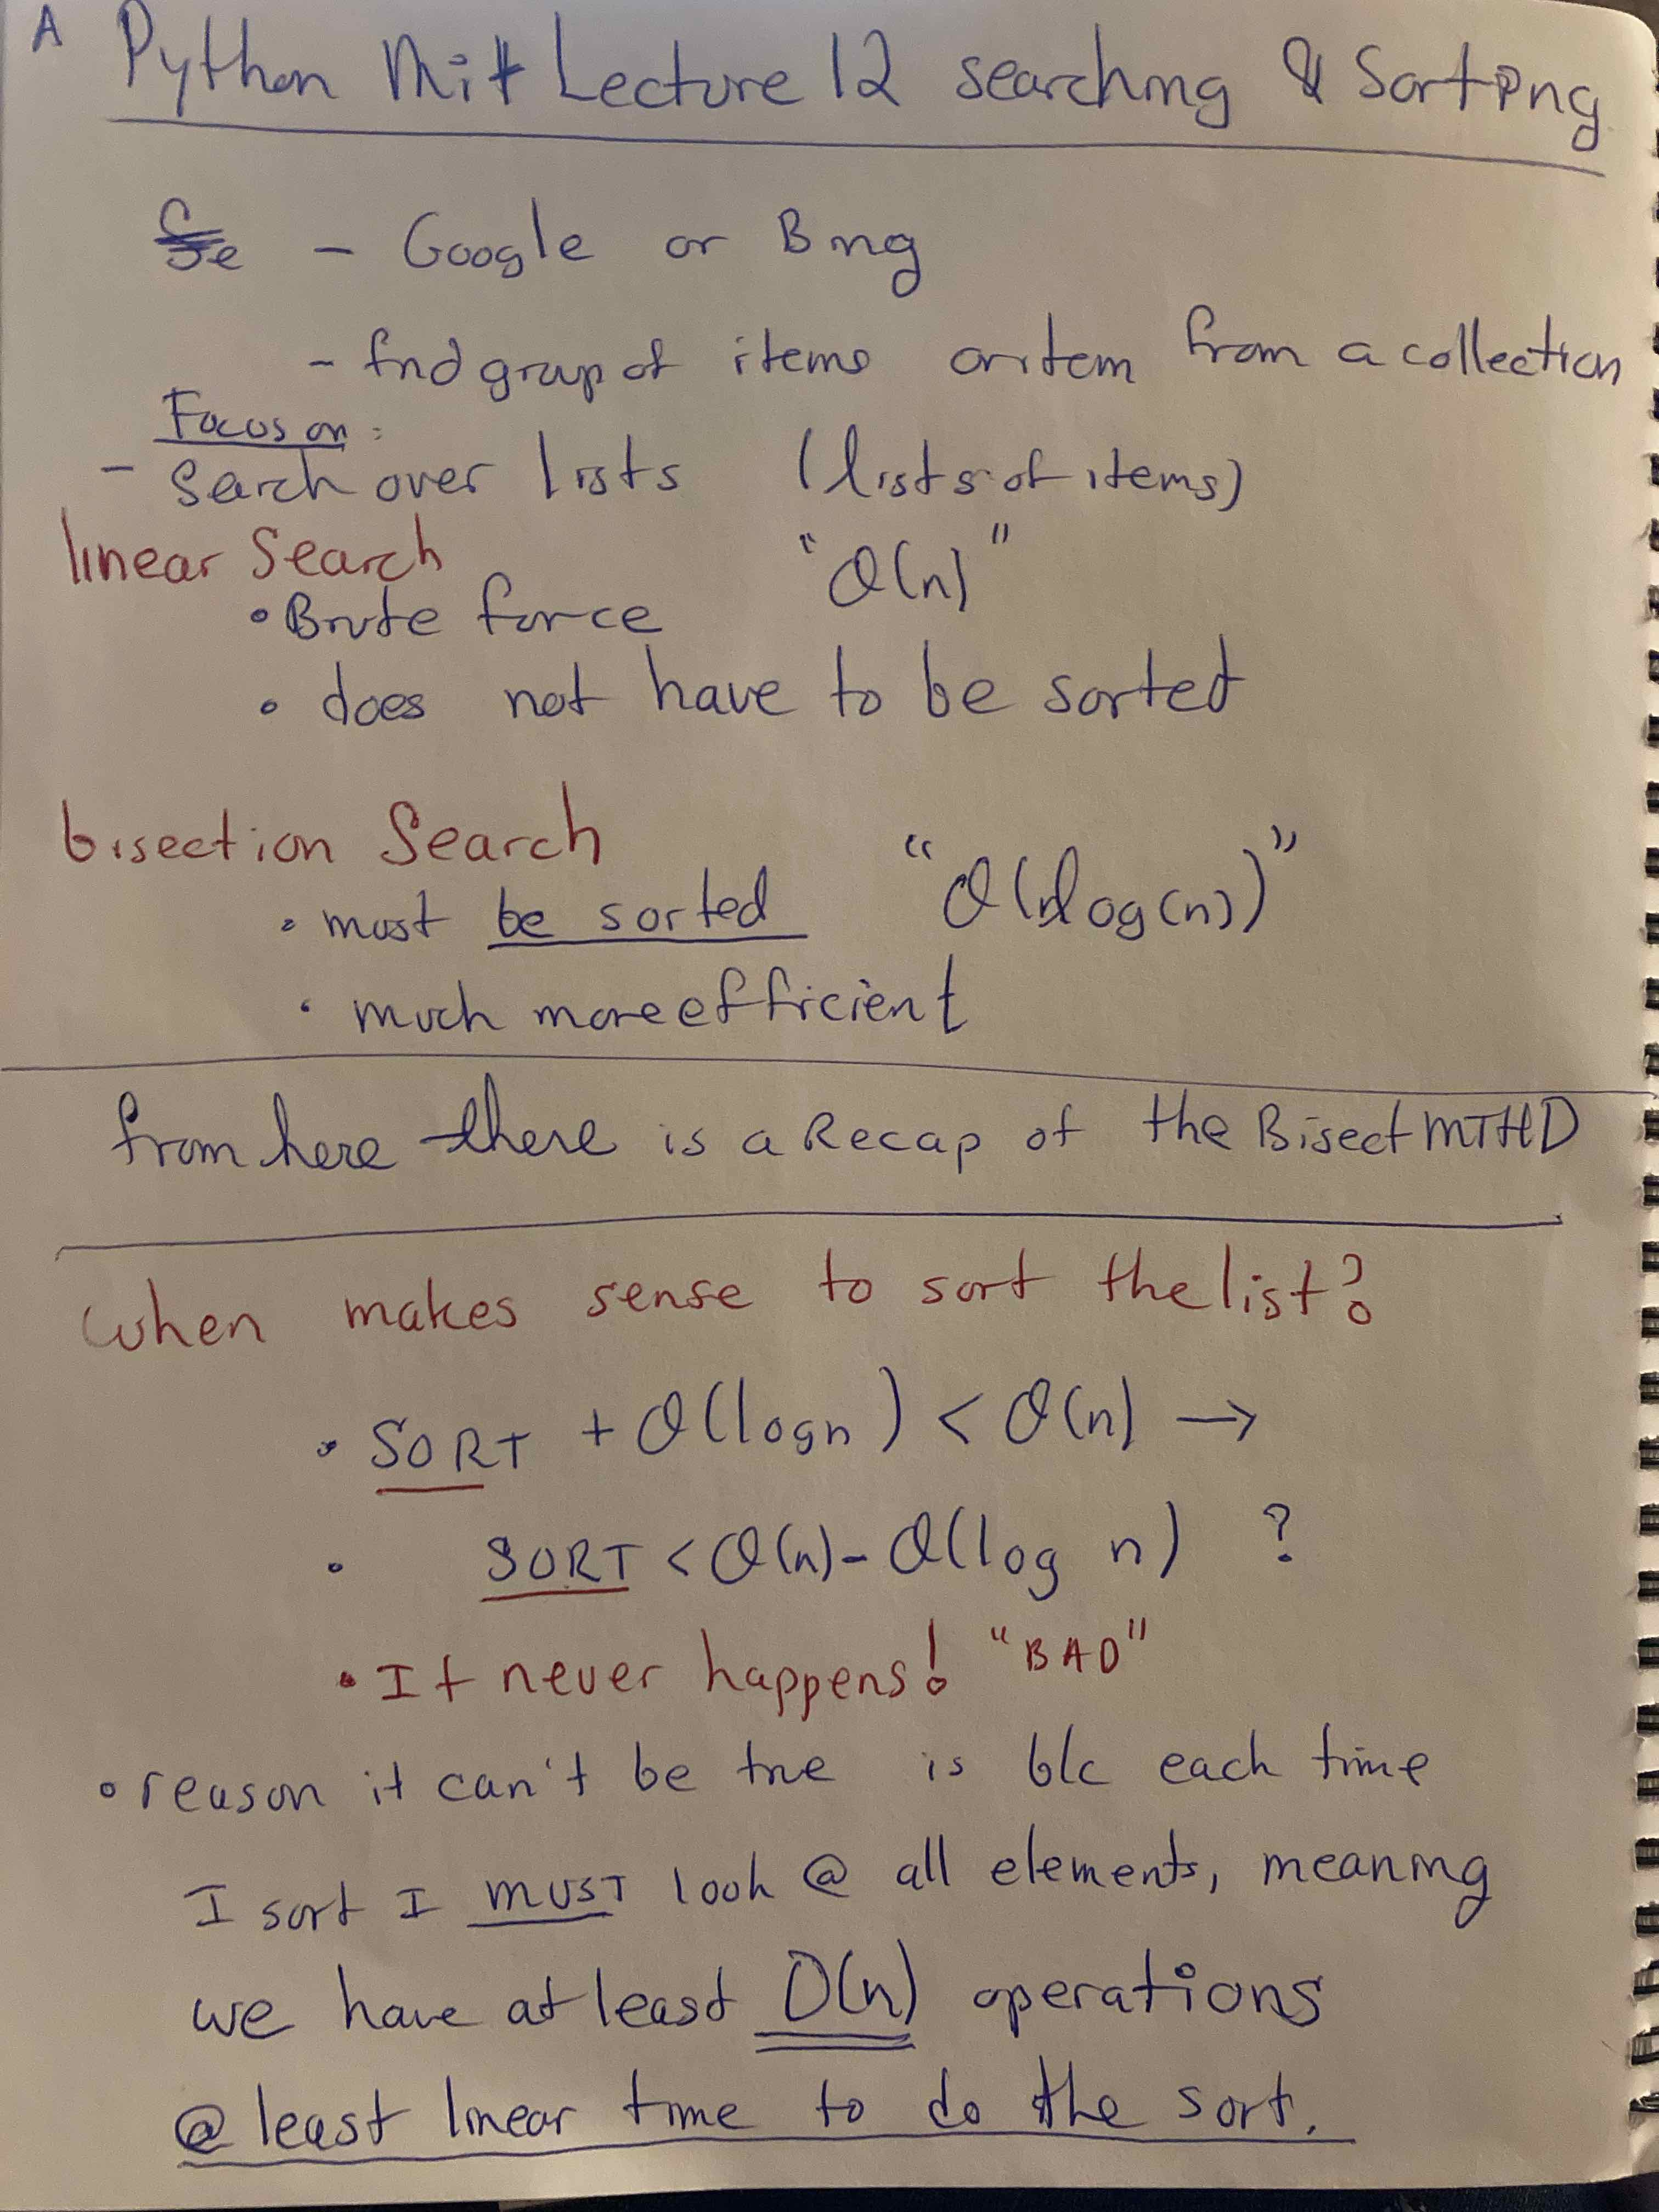 A
Python Mit Lecture 12 searching & Sorting
- Google or Bing
- find group of items or item from a collection
Focus on:
- Search over lists (lists of items)
linear Search "O(n)"
• Brute force
• does not have to be sorted
bisection Search
• must be sorted "O(log(n))"
• much more efficient
from here there is a Recap of the Bisect MTHD
When makes sense to sort the list?
• SORT + O(log n) < O(n) →
• SORT < O(n) - O(log n) ?
• It never happens! "BAD"
• reason it can't be true is b/c each time
I sort I MUST look @ all elements, meaning
we have at least O(n) operations
@ least linear time to do the sort.